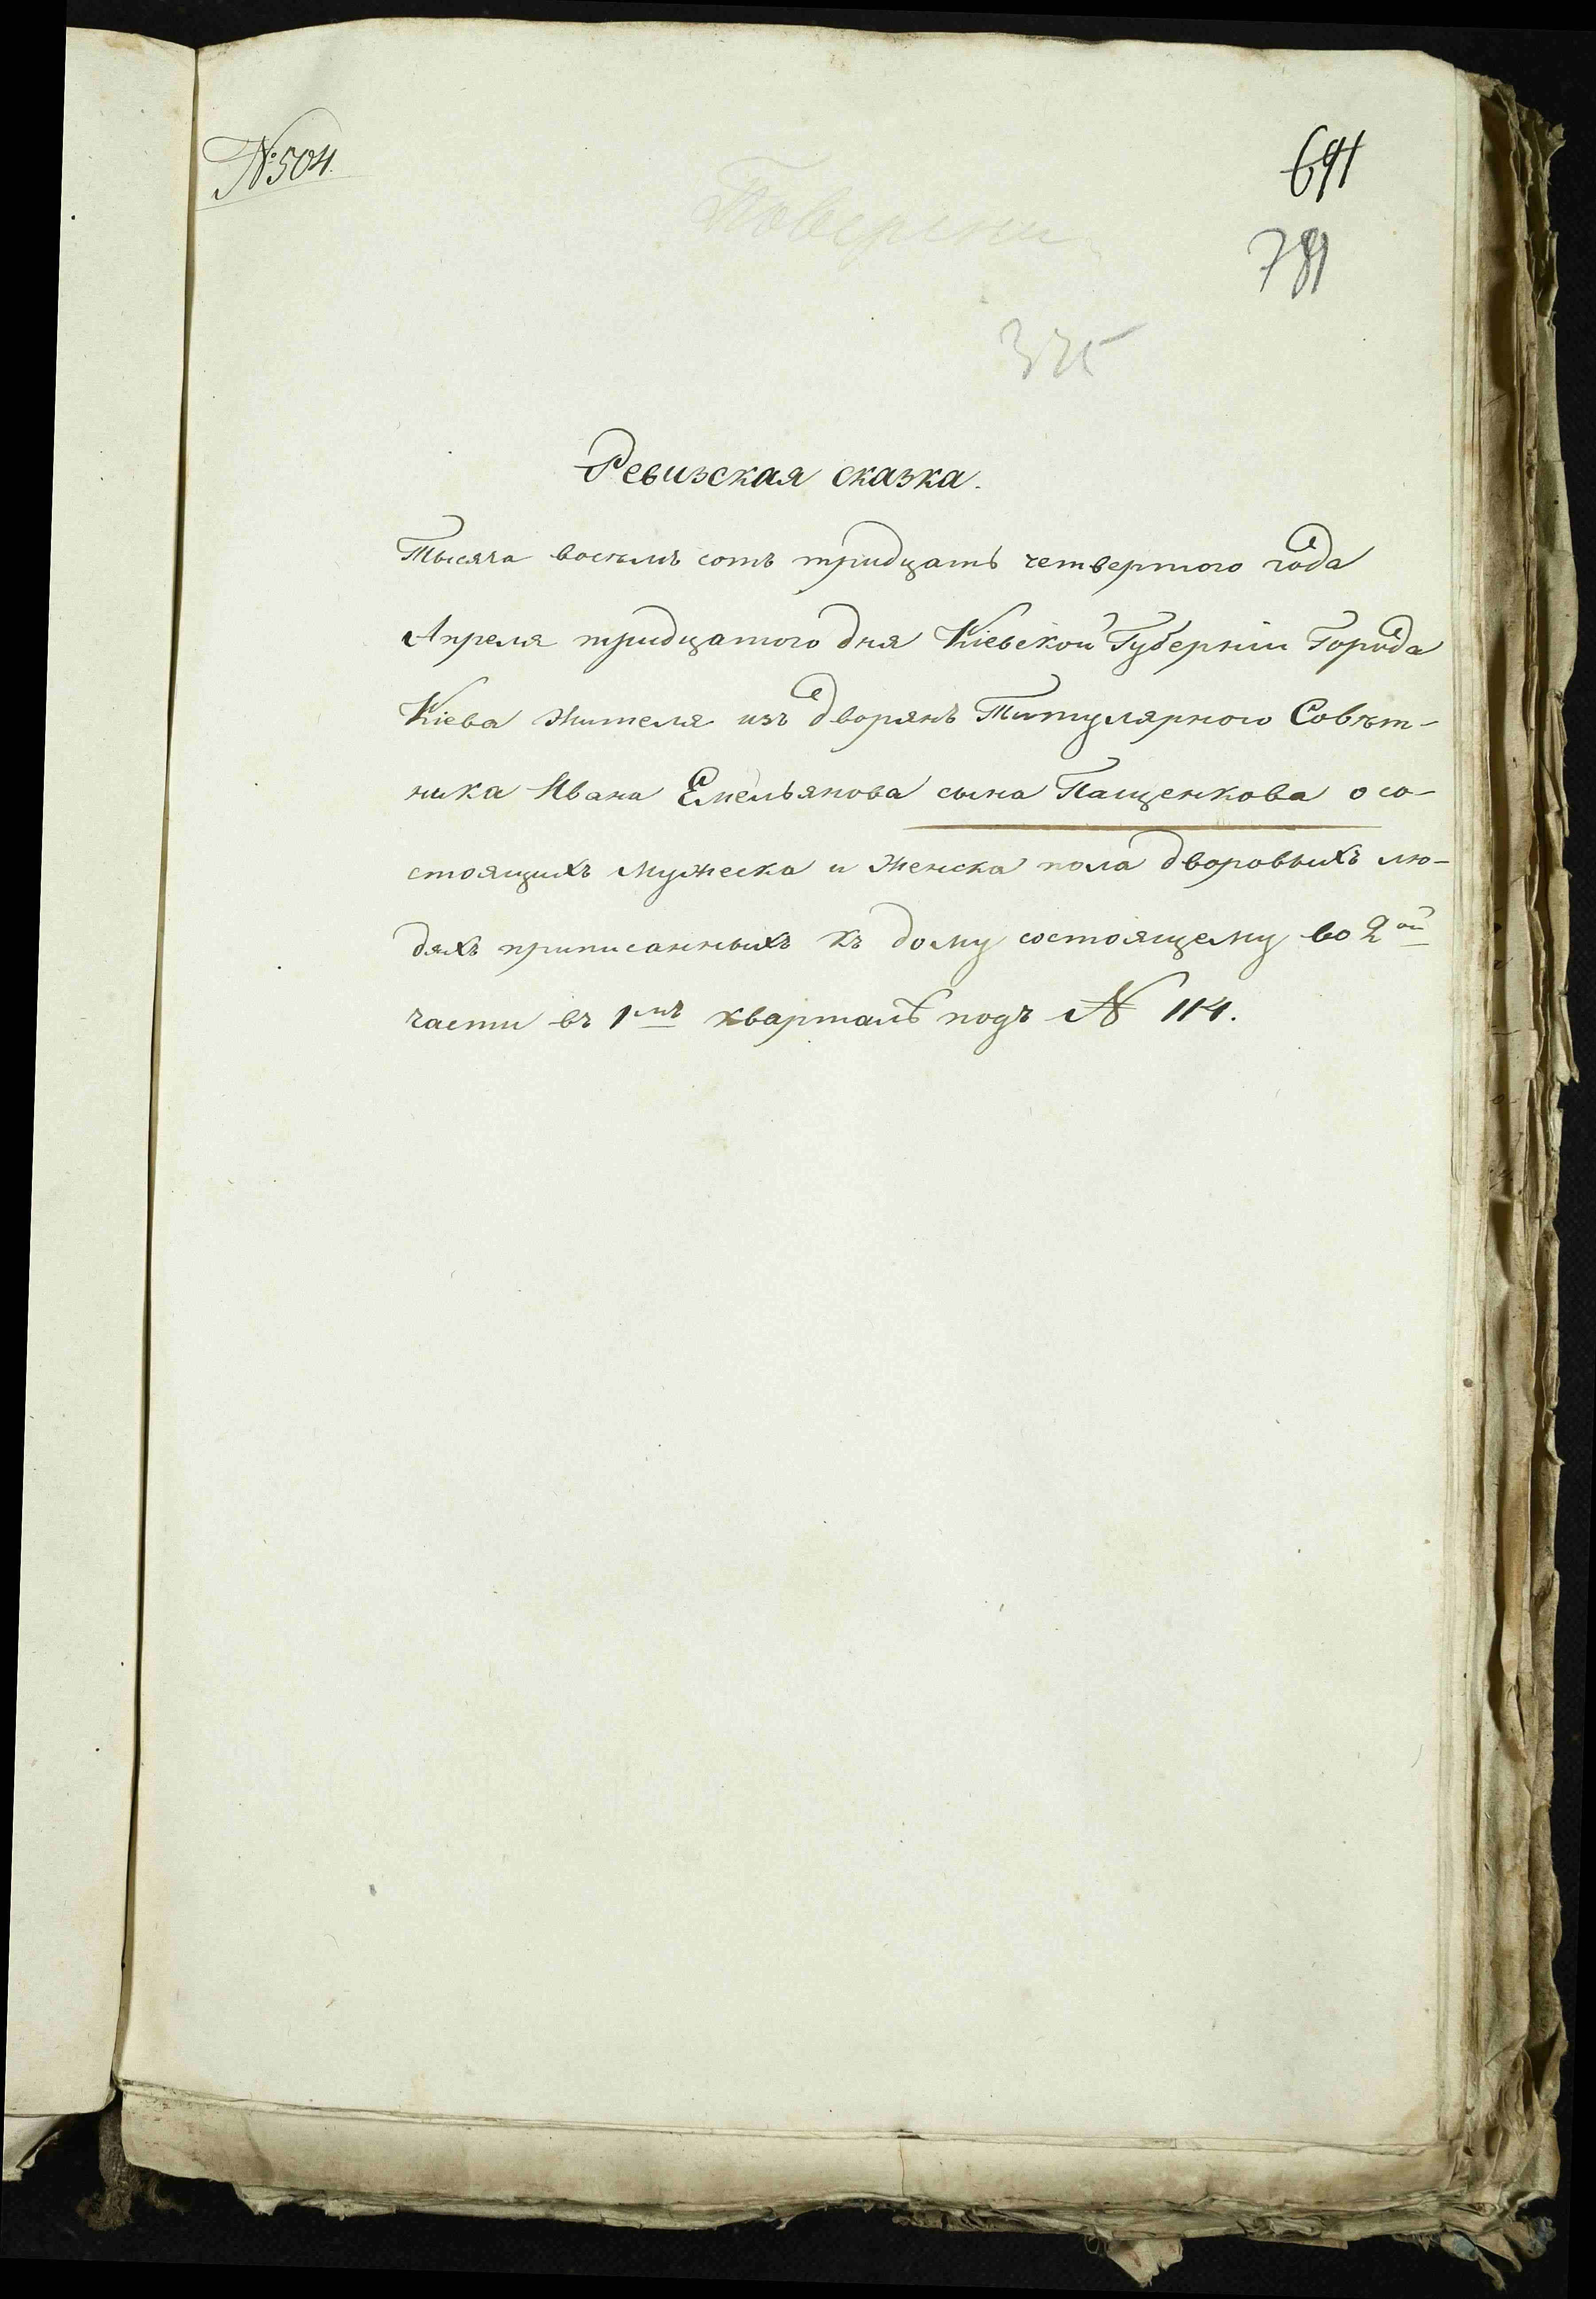 № 504.
691
781
375
Ревизская сказка.
Тысяча восемь сотъ тридцать четвертого года
Апреля тридцатого дня Кіевской Губерніи Города
Кіева жителя изъ дворянъ Титулярного Совѣт-
ника Ивана Емельянова сына Пащенкова о со-
стоящихъ мужеска и женска пола дворовыхъ лю-
дяхъ приписанныхъ къ дому состоящему во 2ой
части въ 1мъ кварталѣ подъ № 114.